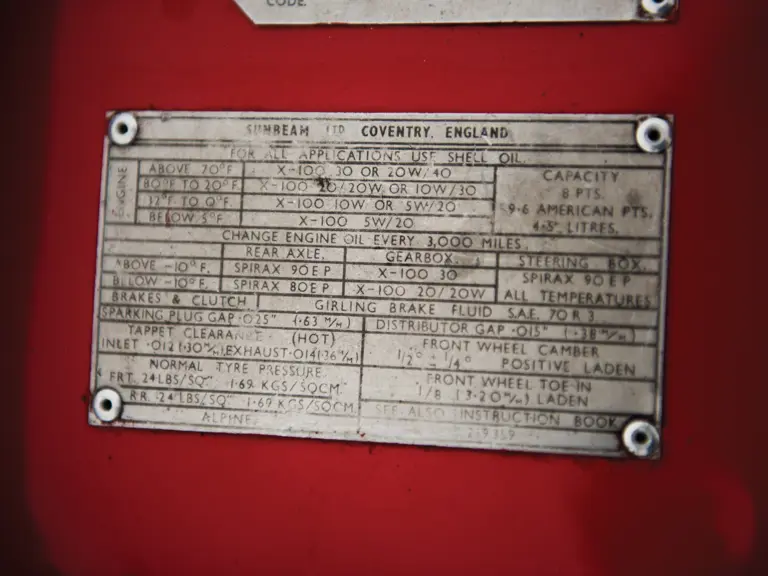 CODE
SUNBEAM LTD COVENTRY, ENGLAND
FOR ALL APPLICATIONS USE SHELL OIL.
ENGINE
ABOVE 70°F X-100 30 OR 20W/40
80°F TO 20°F. X-100 20/20W, OR 10W/30
12°F TO 0°F. X-100 10W OR 5W/20
BELOW 5°F X-100 5W/20
CAPACITY
8 PTS.
9·6 AMERICAN PTS.
4·5 LITRES.
CHANGE ENGINE OIL EVERY 3,000 MILES.
REAR AXLE. GEARBOX. STEERING BOX.
ABOVE -10°F. SPIRAX 90 E P X-100 30 SPIRAX 90 E P
BELOW -10°F. SPIRAX 80 E P X-100 20/20W ALL TEMPERATURES
BRAKES & CLUTCH GIRLING BRAKE FLUID S.A.E. 70 R 3.
SPARKING PLUG GAP ·025" (·63 M/M) DISTRIBUTOR GAP ·015" (·38 M/M)
TAPPET CLEARANCE (HOT)
INLET ·012 (·30 M/M) EXHAUST ·014 (·36 M/M)
FRONT WHEEL CAMBER
1/2° ± 1/4° POSITIVE LADEN
NORMAL TYRE PRESSURE
FRT. 24 LBS/SQ" 1·69 KGS/SQCM
RR. 24 LBS/SQ" 1·69 KGS/SQCM
FRONT WHEEL TOE IN
1/8 (3·20 M/M) LADEN
SEE ALSO INSTRUCTION BOOK
ALPINE